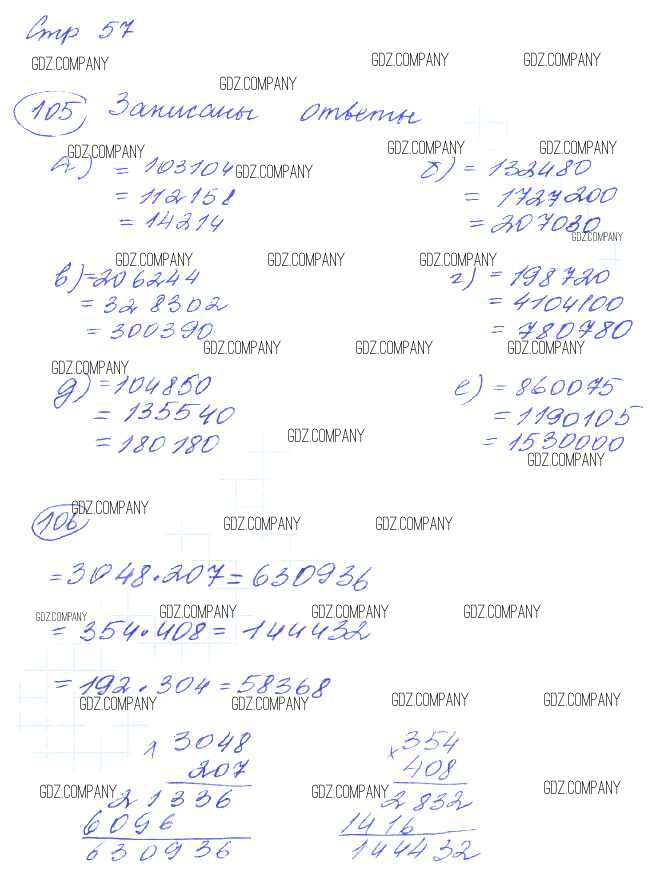 Стр 57
GDZ.COMPANY GDZ.COMPANY GDZ.COMPANY
GDZ.COMPANY
105 Записаны ответы
GDZ.COMPANY GDZ.COMPANY GDZ.COMPANY
а) = 103104 GDZ.COMPANY б) = 132480
= 112158 = 1727200
= 14214 = 207030
GDZ.COMPANY
GDZ.COMPANY GDZ.COMPANY GDZ.COMPANY
в) = 206244 г) = 198720
= 328302 = 4104100
= 300390 = 780780
GDZ.COMPANY GDZ.COMPANY GDZ.COMPANY
GDZ.COMPANY
д) = 104850 е) = 860075
= 135540 = 1190105
= 180180 = 1530000
GDZ.COMPANY
GDZ.COMPANY
GDZ.COMPANY
106 GDZ.COMPANY GDZ.COMPANY
= 3048 · 207 = 630936
GDZ.COMPANY GDZ.COMPANY GDZ.COMPANY GDZ.COMPANY
= 354 · 408 = 144432
= 192 · 304 = 58368
GDZ.COMPANY GDZ.COMPANY GDZ.COMPANY GDZ.COMPANY
x 3048 x 354
207 408
GDZ.COMPANY GDZ.COMPANY GDZ.COMPANY
21336 2832
6096 1416
630936 144432